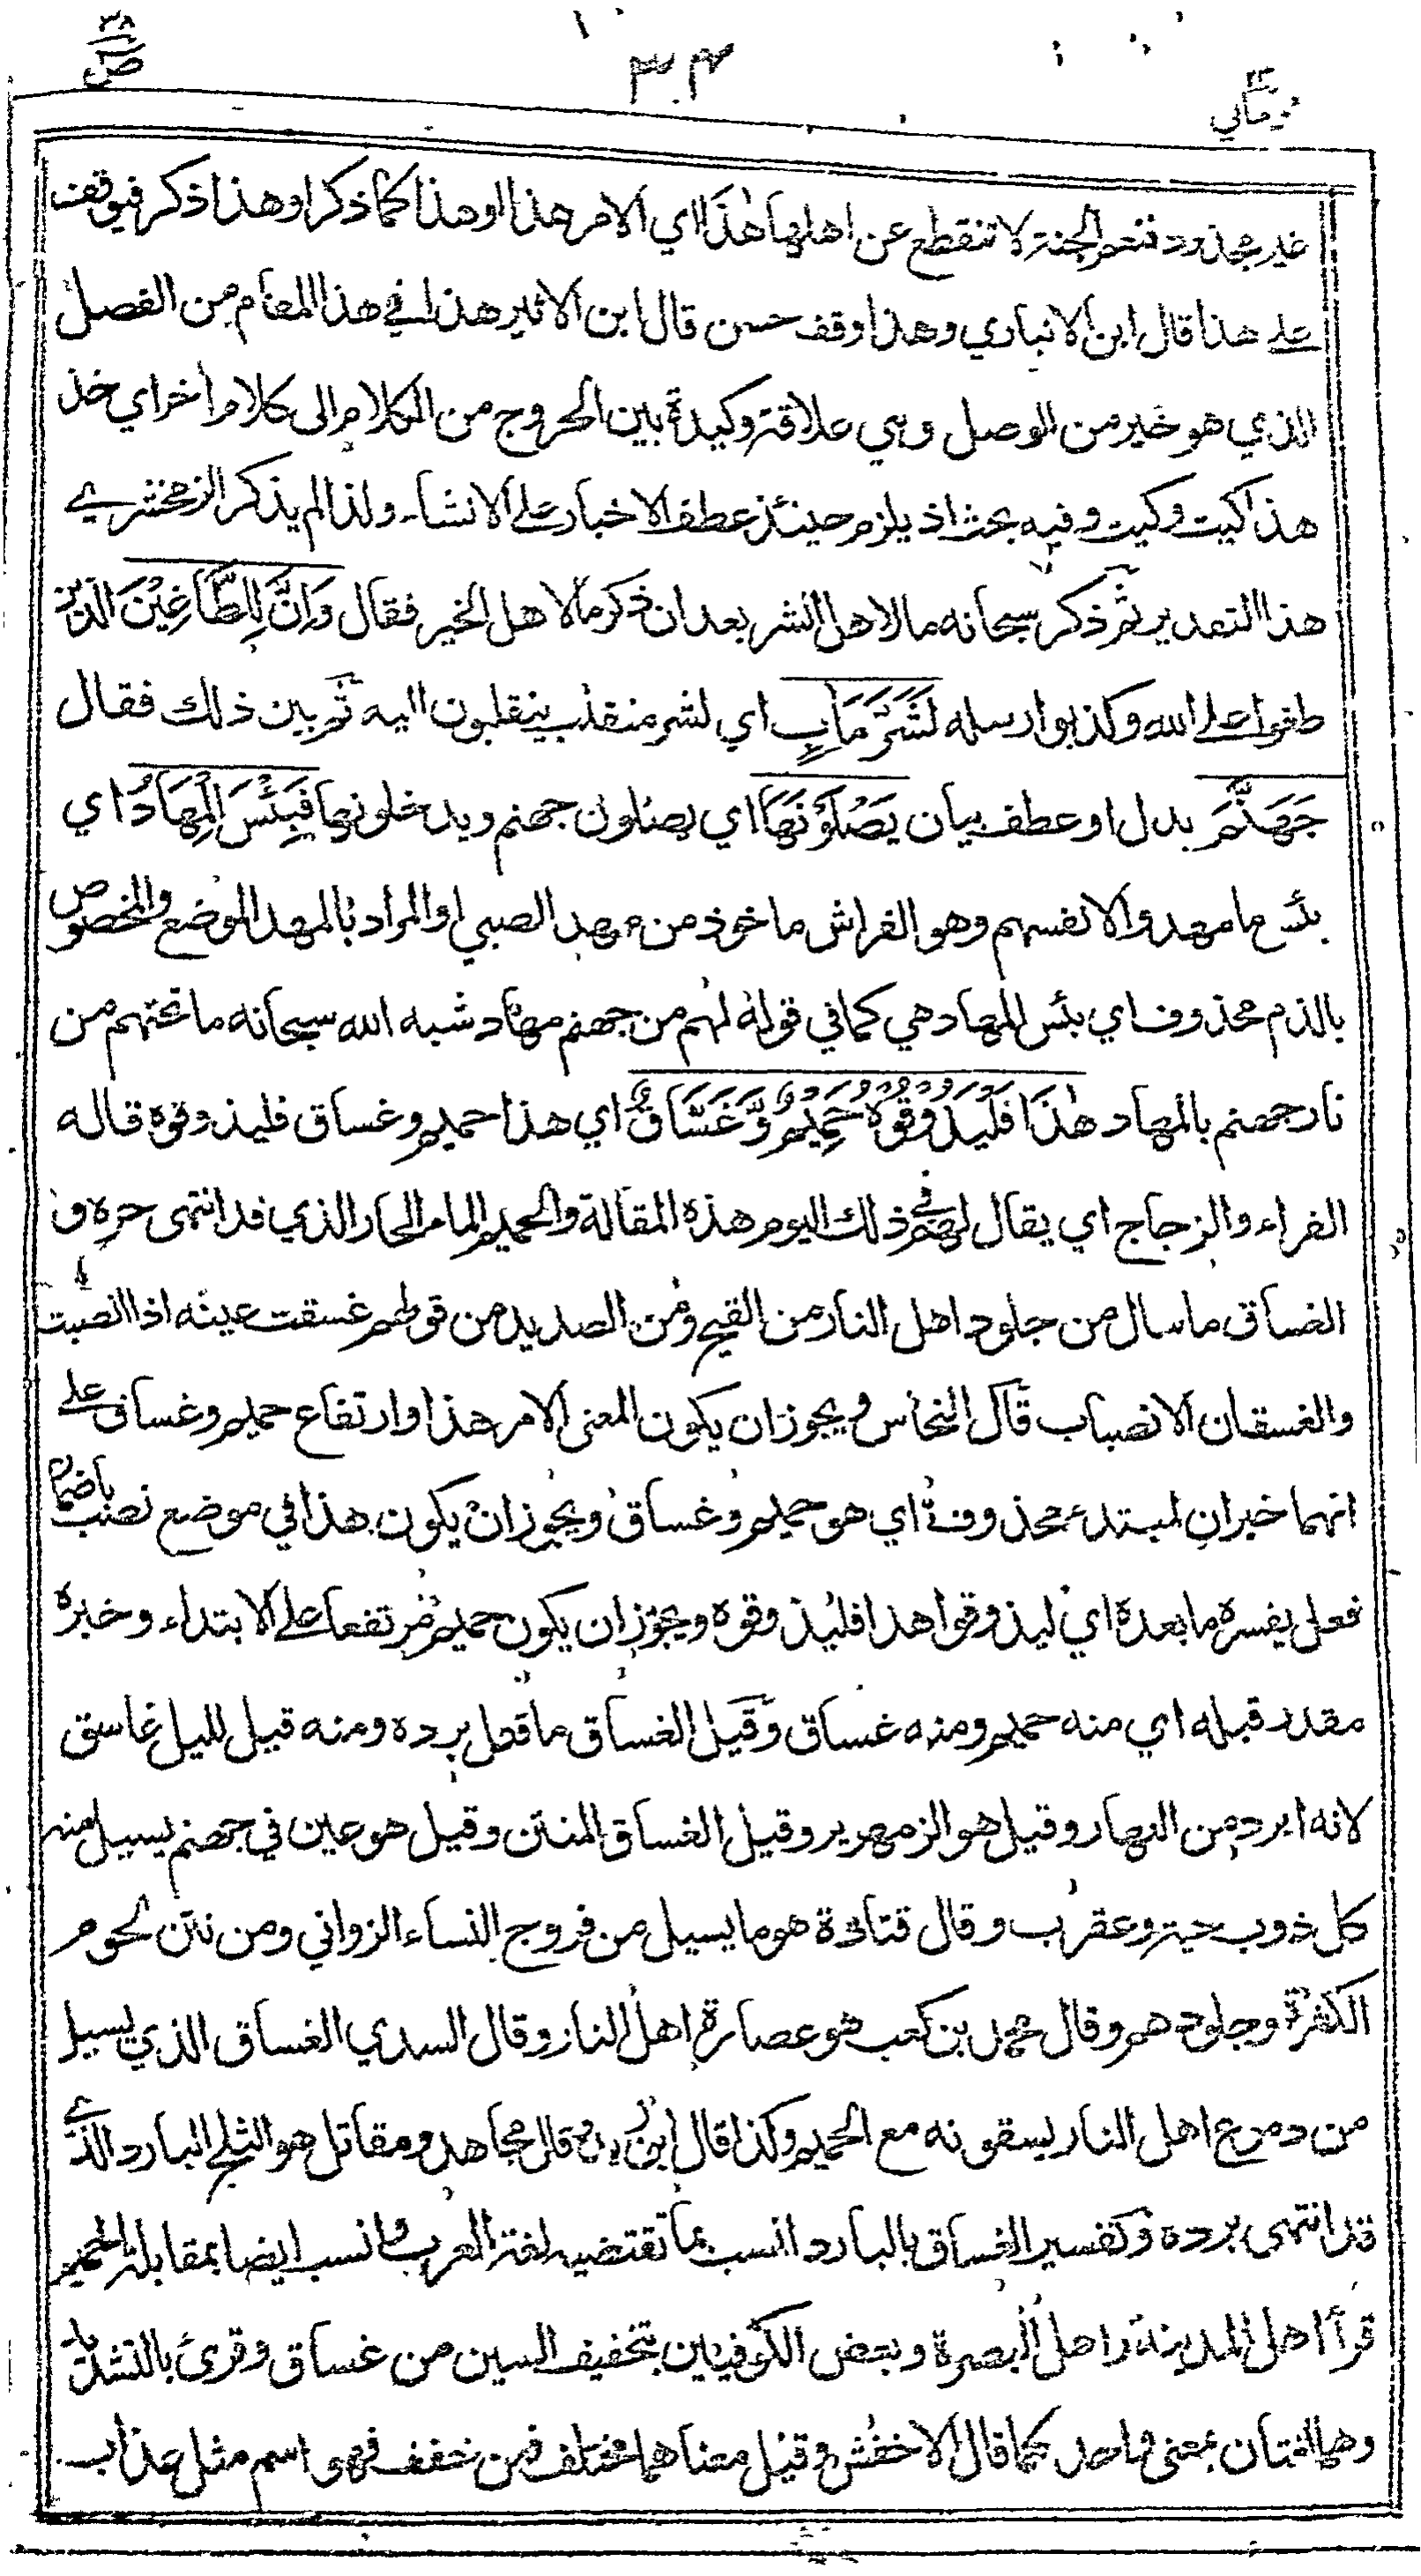 ٣٨
ص
٣٠٤
٢٣
ومالي
غير مجذوذ فنعم الجنة لا تنقطع عن اهلها هٰذَا اي الامر هذا او هذا كما ذكر او هذا ذكر فيوقف
على هذا قال ابن الانباري وهذا وقف حسن قال ابن الاثير هذا في هذا المقام من الفصل
الذي هو خير من الوصل وهي علاقة وكيدة بين الخروج من الكلام الى كلام اخر اي خذ
هذا كيت وكيت وفيه بحث اذ يلزم حينئذ عطف الاخبار على الانشاء ولذا لم يذكر الزمخشري
هذا التقدير ثم ذكر سبحانه ما لاهل الشر بعد ان ذكر ما لاهل الخير فقال وَاِنَّ لِلطَّاغِيْنَ الذين
طغوا على الله وكذبوا رسله لَشَرَّ مَاٰبٍ اي لشر منقلب ينقلبون اليه ثم بين ذلك فقال
جَهَنَّمَ بدل او عطف بيان يَصْلَوْنَهَا اي يصلون جهنم ويدخلونها فَبِئْسَ الْمِهَادُ اي
بئس ما مهدوا لانفسهم وهو الفراش ماخوذ من مهد الصبي او المراد بالمهد الموضع والمخصوص
بالذم محذوف اي بئس المهاد هي كما في قوله لهم من جهنم مهاد شبه الله سبحانه ما تحتهم من
نار جهنم بالمهاد هٰذَا فَلْيَذُوْقُوْهُ حَمِيْمٌ وَّغَسَّاقٌ اي هذا حميم وغساق فليذوقوه قاله
الفراء والزجاج اي يقال لهم في ذلك اليوم هذه المقالة والحميم الماء الحار الذي قد انتهى حره و
الغساق ما سال من جلود اهل النار من القيح ومن الصديد من قولهم غسقت عينه اذا انصبت
والغسقان الانصباب قال النحاس ويجوز ان يكون المعنى الامر هذا وارتفاع حميم وغساق على
انهما خبران لمبتدء محذوف اي هو حميم وغساق ويجوز ان يكون هذا في موضع نصب باضمار
فعل يفسره ما بعده اي ليذوقوا هذا فليذوقوه ويجوز ان يكون حميم مرتفعا على الابتداء وخبره
مقدر قبله اي منه حميم ومنه غساق وقيل الغساق ما قتل برده ومنه قيل لليل غاسق
لانه ابرد من النهار وقيل هو الزمهرير وقيل الغساق المنتن وقيل هو عين في جهنم يسيل منه
كل ذوب حية وعقرب وقال قتادة هو ما يسيل من فروج النساء الزواني ومن نتن لحوم
الكفرة وجلودهم وقال محمد بن كعب هو عصارة اهل النار وقال السدي الغساق الذي يسيل
من دموع اهل النار يسقونه مع الحميم وكذا قال ابن زيد وقال مجاهد ومقاتل هو الثلج البارد الذي
قد انتهى برده وتفسير الغساق بالبارد انسب بما تقتضيه لغة العرب وانسب ايضا بمقابلة الحميم
قرأ اهل المدينة واهل البصرة وبعض الكوفيين بتخفيف السين من غساق وقرئ بالتشديد
وهما لغتان بمعنى واحد كما قال الاخفش وقيل معناهما مختلف فمن خفف فهو اسم مثل عذاب